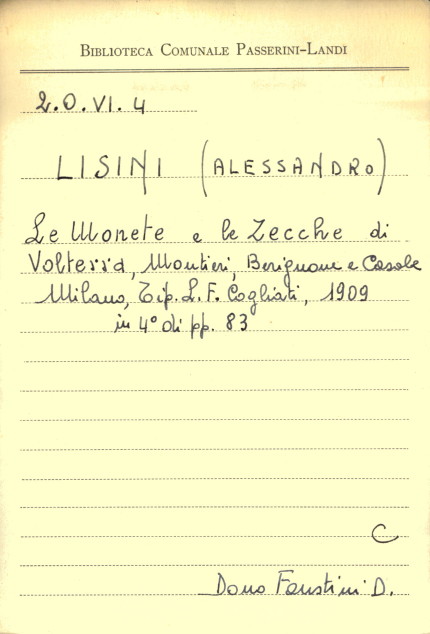 BIBLIOTECA COMUNALE PASSERINI-LANDI
2.O.VI.4
LISINI (ALESSANDRO)
Le Monete e le Zecche di
Volterra, Montieri, Berignone e Casole
Milano, Tip. L. F. Cogliati, 1909
in 4° di pp. 83
C
Dono Faustini D.